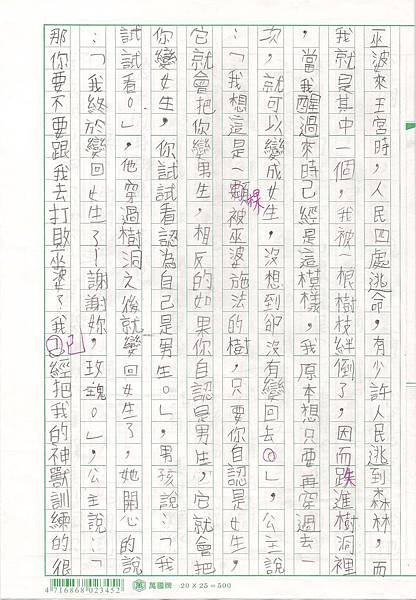 巫波來王宮時，人民四處逃命，有少許人民逃到森林，而
我就是其中一個，我被一根樹枝絆倒了，因而跌進樹洞裡
，當我醒過來時已經是這模樣，我原本想只要再穿過去一
次，就可以變成女生，沒想到卻沒有變回去。」，公主說
：「我想這是一顆棵被巫婆施法的樹，只要你自認是女生，
它就會把你變男生，相反的如果你自認是男生，它就會把
你變女生，你試試看認為自己是男生。」，男孩說：「我
試試看。」，他穿過樹洞之後就變回女生了，她開心的說
：「我終於變回女生了！謝謝妳，玫瑰。」，公主說：「
那你要不要跟我去打敗巫婆？我已已經把我的神獸訓練的很
4 716868 023452
萬國牌 20×25=500